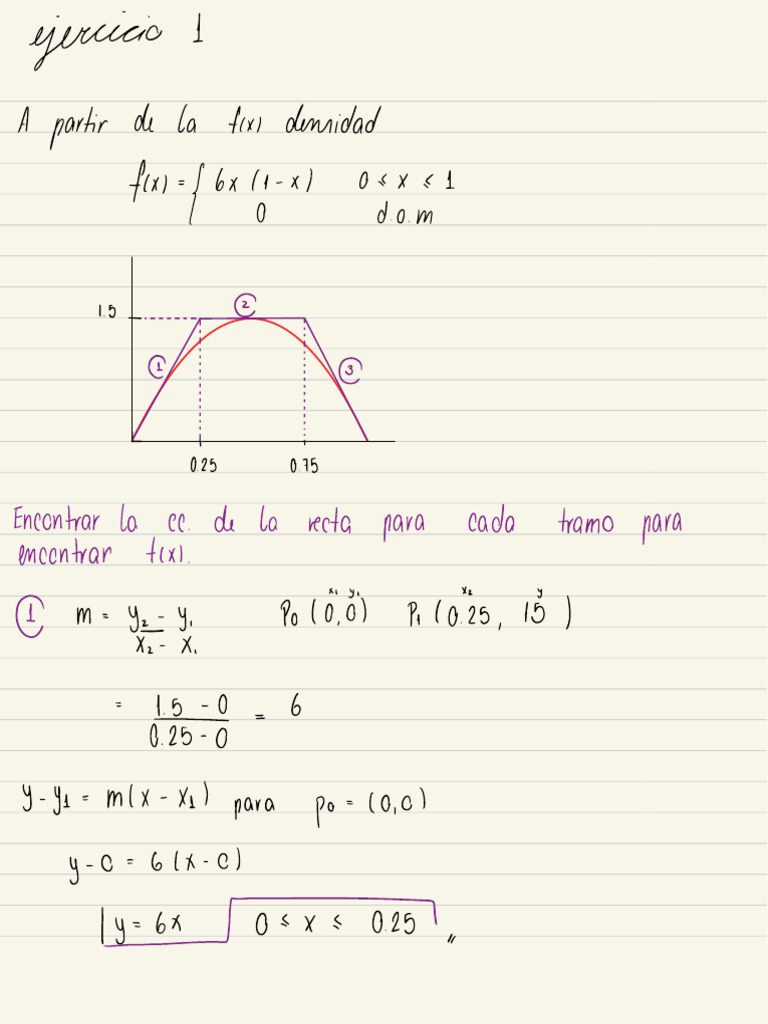 ejercicio 1
A partir de la f(x) densidad
f(x) = { 6x (1 - x)    0 ≤ x ≤ 1
0    d.o.m
1.5
2
1
3
0.25    0.75
Encontrar la ec. de la recta para cada tramo para
encontrar f(x).
1    m = y₂ - y₁ / x₂ - x₁    x₁ y₁    P₀ (0,0)    x₂ y    P₁ (0.25, 1.5)
= 1.5 - 0 / 0.25 - 0 = 6
y - y₁ = m(x - x₁) para p₀ = (0,0)
y - 0 = 6 (x - 0)
y = 6x    0 ≤ x ≤ 0.25 〃